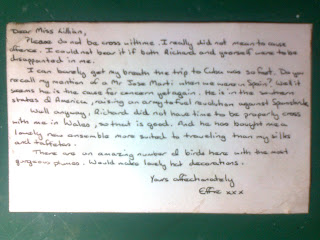 Dear Miss Lillian,
Please do not be cross with me. I really did not mean to cause
offence. I could not bear it if both Richard and yourself were to be
disappointed in me.
I can barely get my breath the trip to Cuba was so fast. Do you
recall my mention of a Mr Jose Marti when we were in Spain? Well it
seems he is the cause for concern yet again. He is in the southern
states of America, raising an army to fuel revolution against Spanish rule.
Well anyway, Richard did not have time to be properly cross
with me in Wales, so that is good. And he has bought me a
lovely new ensemble more suited to traveling than my silks
and taffetas.
There are an amazing number of birds here with the most
gorgeous plumes. Would make lovely hat decorations.
Yours affectionately
Effie xxx